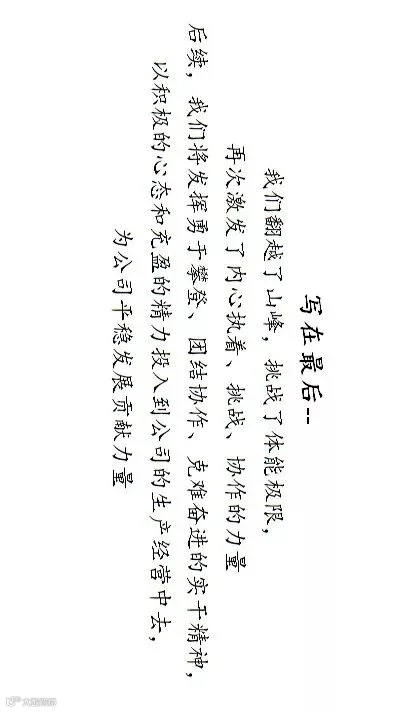 写在最后--
我们翻越了山峰，挑战了体能极限，
再次激发了内心执着、挑战、协作的力量
后续，我们将发挥勇于攀登、团结协作、克难奋进的实干精神，
以积极的心态和充盈的精力投入到公司的生产经营中去，
为公司平稳发展贡献力量